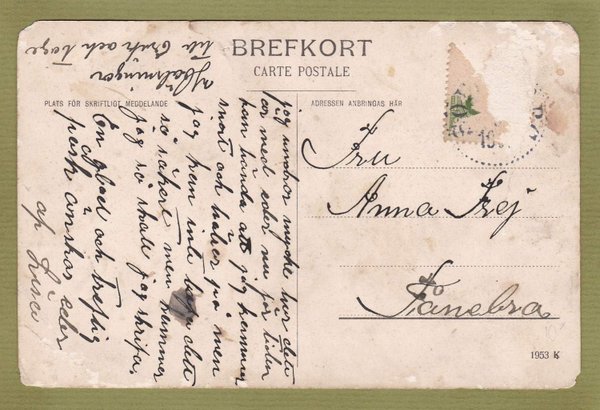 BREFKORT
CARTE POSTALE
PLATS FÖR SKRIFTLIGT MEDDELANDE
ADRESSEN ANBRINGAS HÄR
Fru
Anna Frej
Fånebra
1953 K
jag undrar mycke hur dete
är med eder nu för tiden
kan hända att jag kommer
snart och hälsar på men
jag kan inte lofva dete
så säkert men kommer
jag så skall jag skrifva
En glad och treflig
påsk önskas eder
af Lisa
Hälsningar
till och Tage